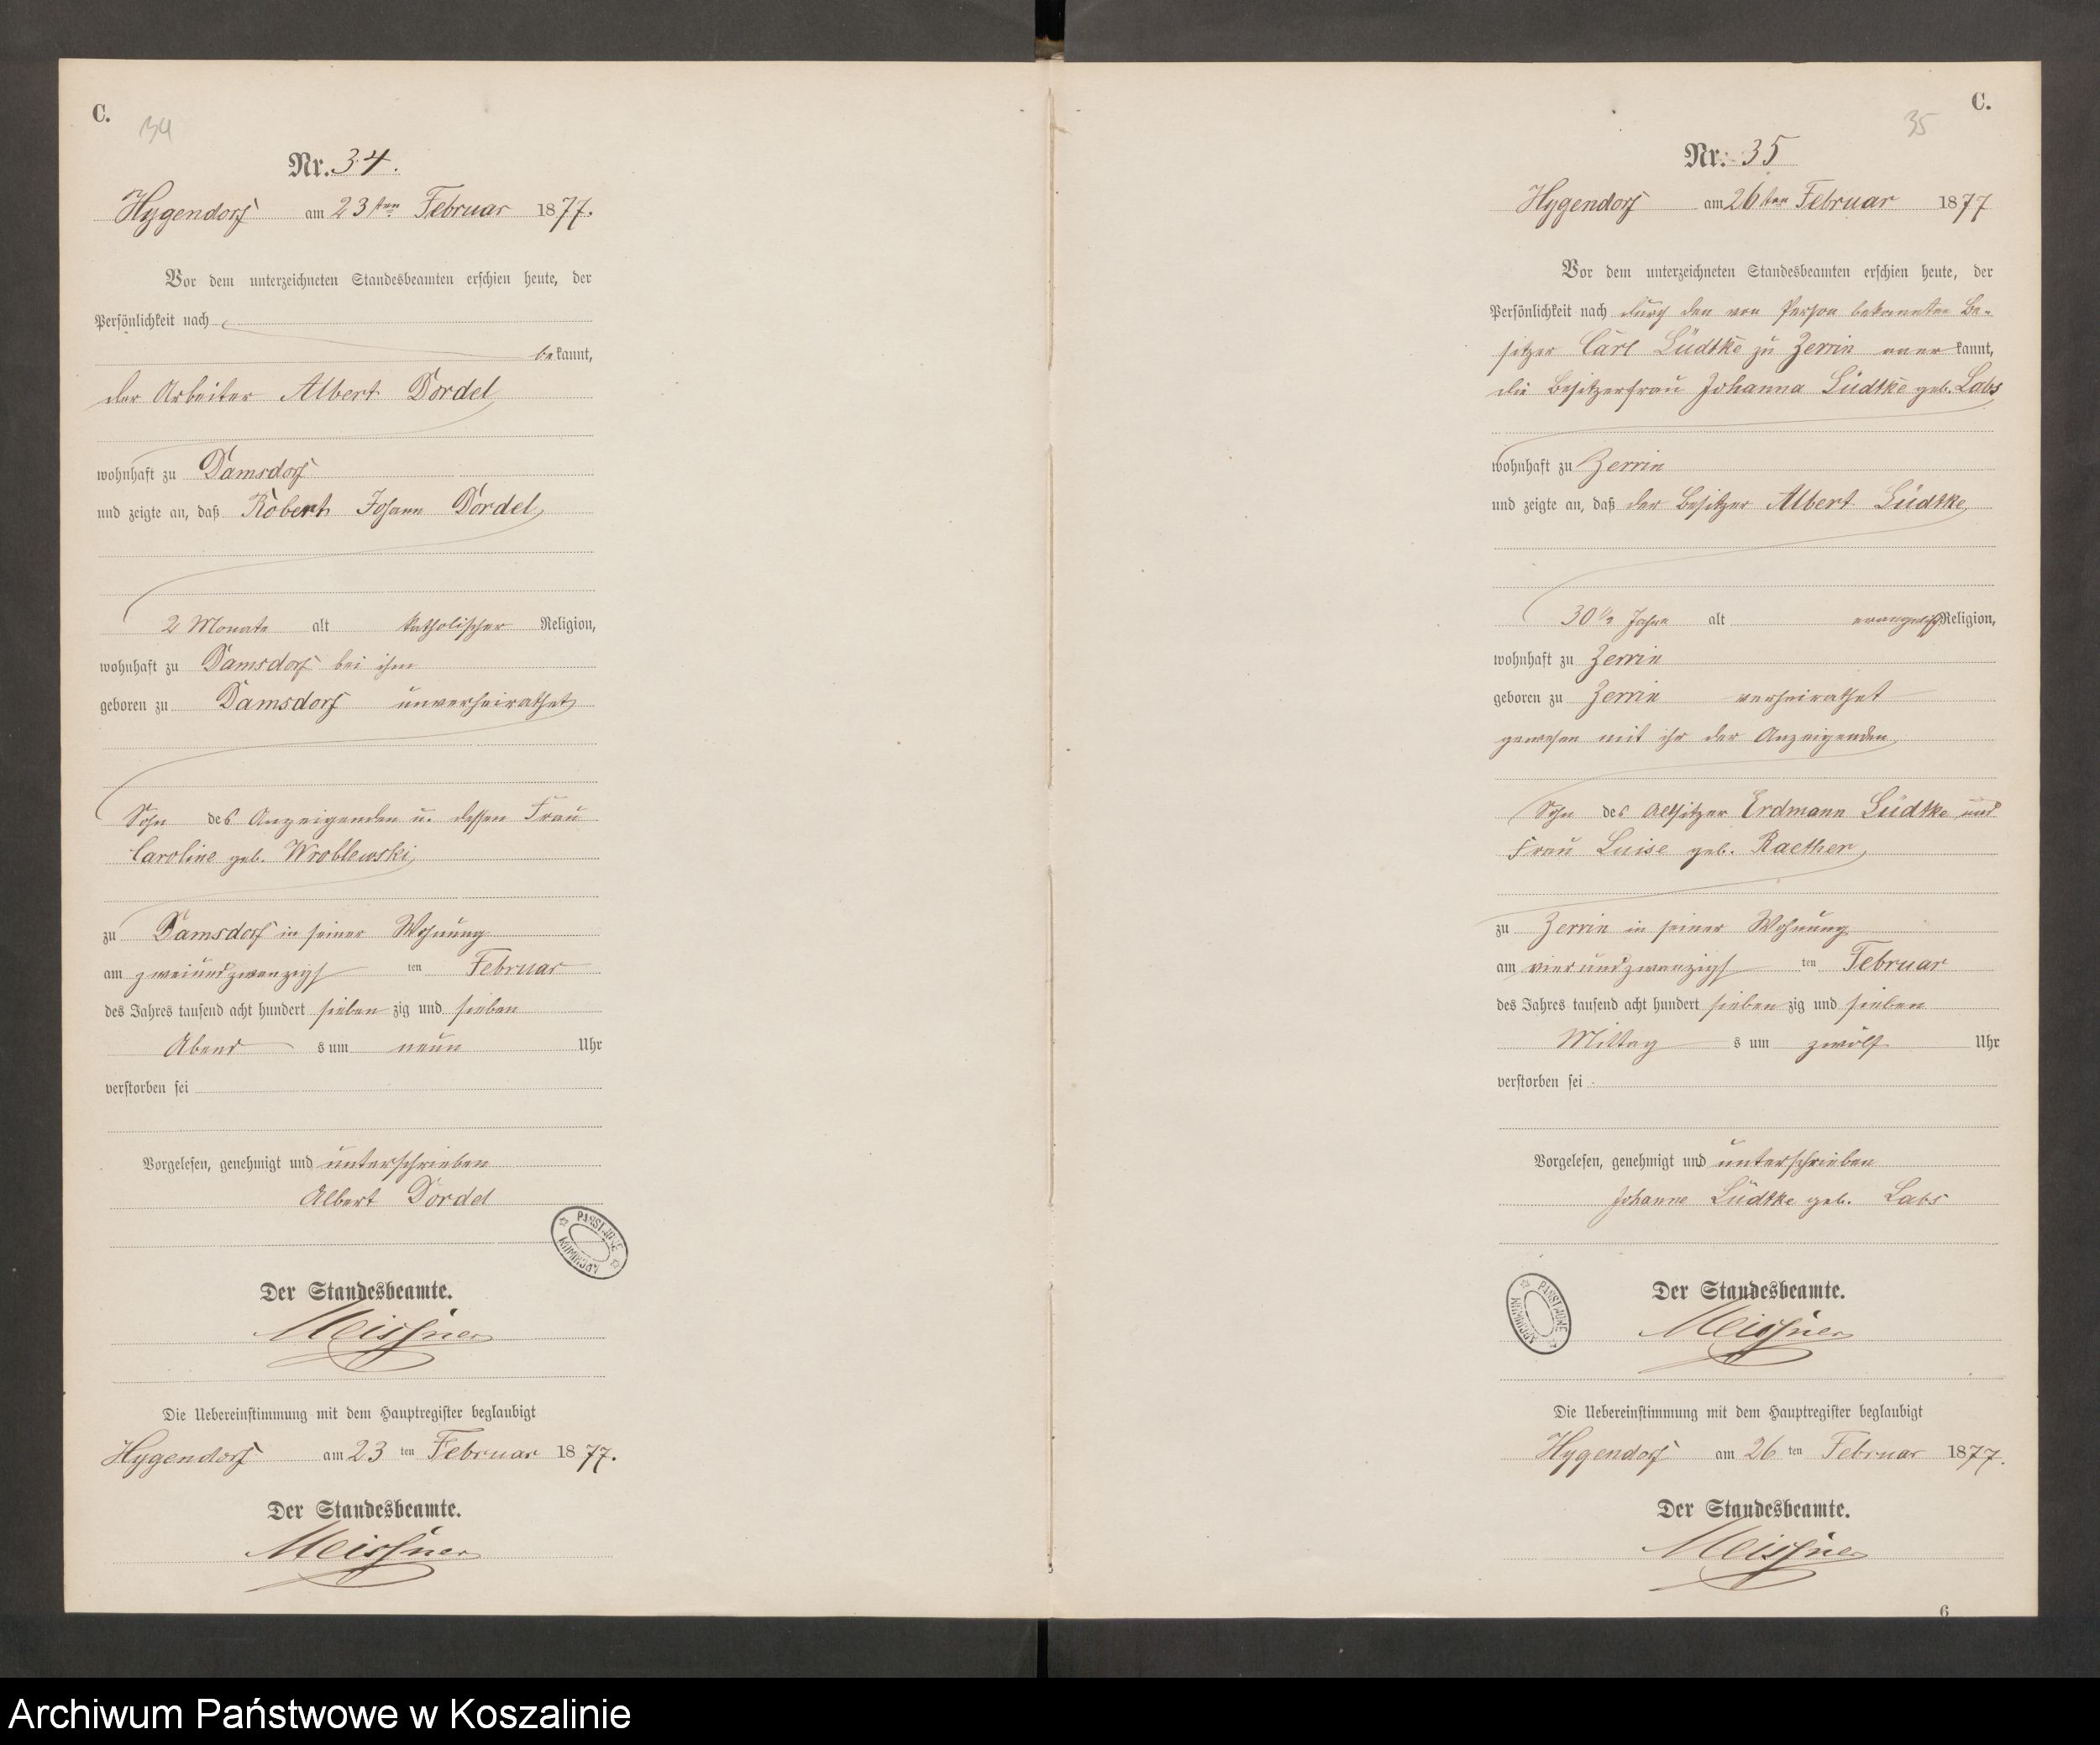 C.
34
Nr. 34.
Hygendorf am 23ten Februar 1877.
Vor dem unterzeichneten Standesbeamten erschien heute, der
Persönlichkeit nach
bekannt,
der Arbeiter Albert Dordel
wohnhaft zu Damsdorf
und zeigte an, daß Robert Johann Dordel
2 Monate alt katholischer Religion,
wohnhaft zu Damsdorf bei ihm
geboren zu Damsdorf unverheirathet
Sohn des Anzeigenden u. dessen Frau
Caroline geb. Wroblewski
zu Damsdorf in seiner Wohnung
am zweiundzwanzigsten Februar
des Jahres tausend acht hundert siebenzig und sieben
Abends um neun Uhr
verstorben sei
Vorgelesen, genehmigt und unterschrieben
Albert Dordel
Der Standesbeamte.
Meissner
Die Uebereinstimmung mit dem Hauptregister beglaubigt
Hygendorf am 23ten Februar 1877.
Der Standesbeamte.
Meissner
C.
35
Nr. 35
Hygendorf am 26ten Februar 1877
Vor dem unterzeichneten Standesbeamten erschien heute, der
Persönlichkeit nach durch den von Person bekannten Be-
sitzer Carl Lüdtke zu Zerrin anerkannt,
die Besitzerfrau Johanna Lüdtke geb. Labs
wohnhaft zu Zerrin
und zeigte an, daß der Besitzer Albert Lüdtke
30 1/2 Jahre alt evangelisch Religion,
wohnhaft zu Zerrin
geboren zu Zerrin verheirathet
gewesen mit ihr der Anzeigenden
Sohn des Altsitzer Erdmann Lüdtke und
Frau Luise geb. Raether
zu Zerrin in seiner Wohnung
am vierundzwanzigsten Februar
des Jahres tausend acht hundert siebenzig und sieben
Mittags um zwölf Uhr
verstorben sei
Vorgelesen, genehmigt und unterschrieben
Johanne Lüdtke geb. Labs
Der Standesbeamte.
Meissner
Die Uebereinstimmung mit dem Hauptregister beglaubigt
Hygendorf am 26ten Februar 1877.
Der Standesbeamte.
Meissner
6
Archiwum Państwowe w Koszalinie